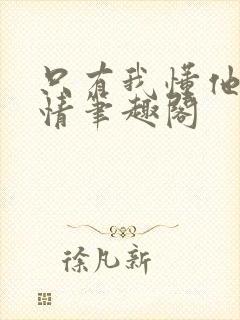 只有我懂他
情笔趣阁
徐凡新